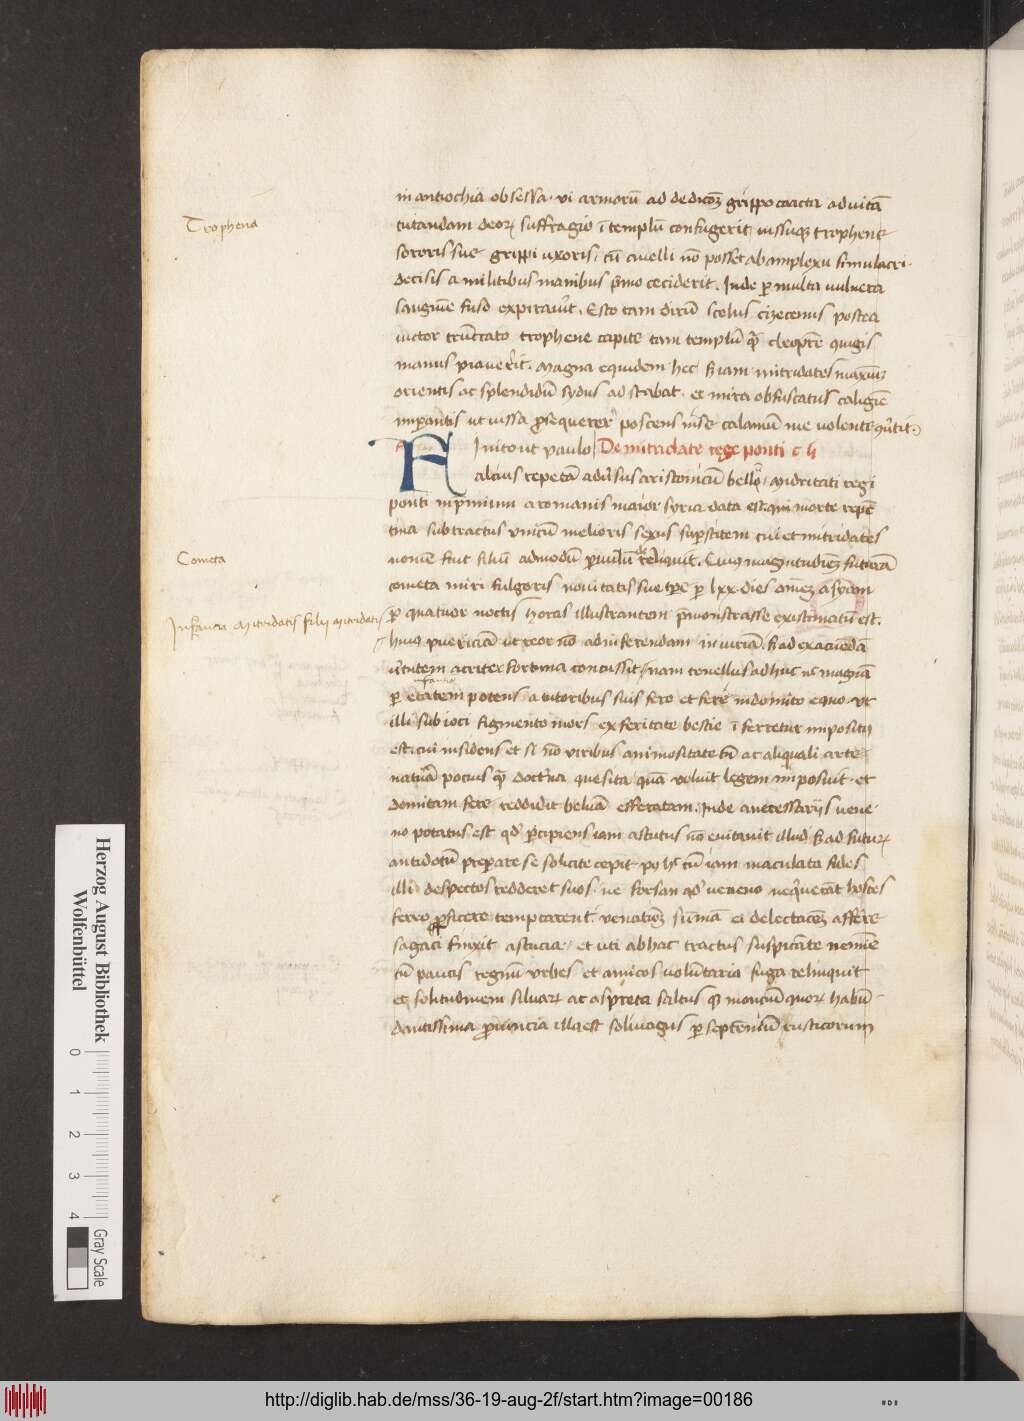 Trophena
Cometa
Infancia Mitridatis filij mitridatis
in antiochia obsessa. vi armorū ad dedicōꝫ grippo coacta ad vitā
tutandam deoꝝ suffragio ī templū confugerit iussuqꝫ trophene
sororis sue grippi uxoris. cū auelli nō posset ab amplexu simulacri.
decisis a militibus manibus pͥmo ceciderit. Inde ꝑ multa uulnera
sanguīe fuso expirauīt. Esto tam dirū scelus cizecenus postea
uictor trūcato trophene capite tam templū qͣꝫ cleopͣtre
manus piauerit. Magna equidem hec sꝫ iam mitridates maximꝰ
orientis ac splendidū sydus adstabat. et mira obfuscatus caligīe
impantis ut iussa ꝓsequerer poscens calamū me uolente
F Inito ut paulo De mitridate rege ponti c
altius repetā adūsus aristonicū bello. Midritati regi
ponti inpͥmum a romanis maior syria data est. qui morte repē
tina subtractus vnicū melioris sexus supstitem cui et mitridates
nomē fuit filiū admodū ꝑuulū reliquit. Cuiꝰ magnitudieꝫ futurā
cometa miri fulgoris nouitatis sue tp̄e ꝑ lxx. dies
ꝑ quatuor noctis horas illustrantem pͣmonstrasse existimatū est.
huiꝰ puericiā ut reor nō ad inferendam iniuriā. sꝫ ad exacuēdā
ūtutem acriter fortuna concussit. nam tenellus adhuc nc magnā
ꝑ etatem potens a tutoribus suis fero et fere indomito equo. ut
illi sub ioci figmento mors ex feritate bestie ī ferretur impositꝰ
est. cui insidens et si nō viribus animositate tn̄ ac aliquali arte
natuͣra pocius qͣꝫ doctͥna quesita quā voluit legem imposuit. et
domitam fere reddidit beluā efferatam. Inde a necessarijs uene
no potatus est qd̕ pͥcipiens iam astutus nō euitauit illud sꝫ ad futuꝝ
antidotū preparare se solicite cepit. cū iam maculata fides
illi despectos redderet suos. ne forsan qd̕ veneno nequerāt hostes
ferro ꝑficere temptarent. venatiōꝫ sūmā ei delectacōeꝫ afferre
sagaci finxit astucia. et uti ab hac tractus suspicāte nemīe
cū paucis regnū vrbes et amicos volūtaria fuga relinquit
et solitudinem siluaꝝ ac aspreta saltus qꝫ monciū quoꝝ habū
dantissima ꝓuincia illa est soliuagus ꝑ septeniū rusticorum
Herzog August Bibliothek
Wolfenbüttel
0 1 2 3 4
Gray Scale
http://diglib.hab.de/mss/36-19-aug-2f/start.htm?image=00186